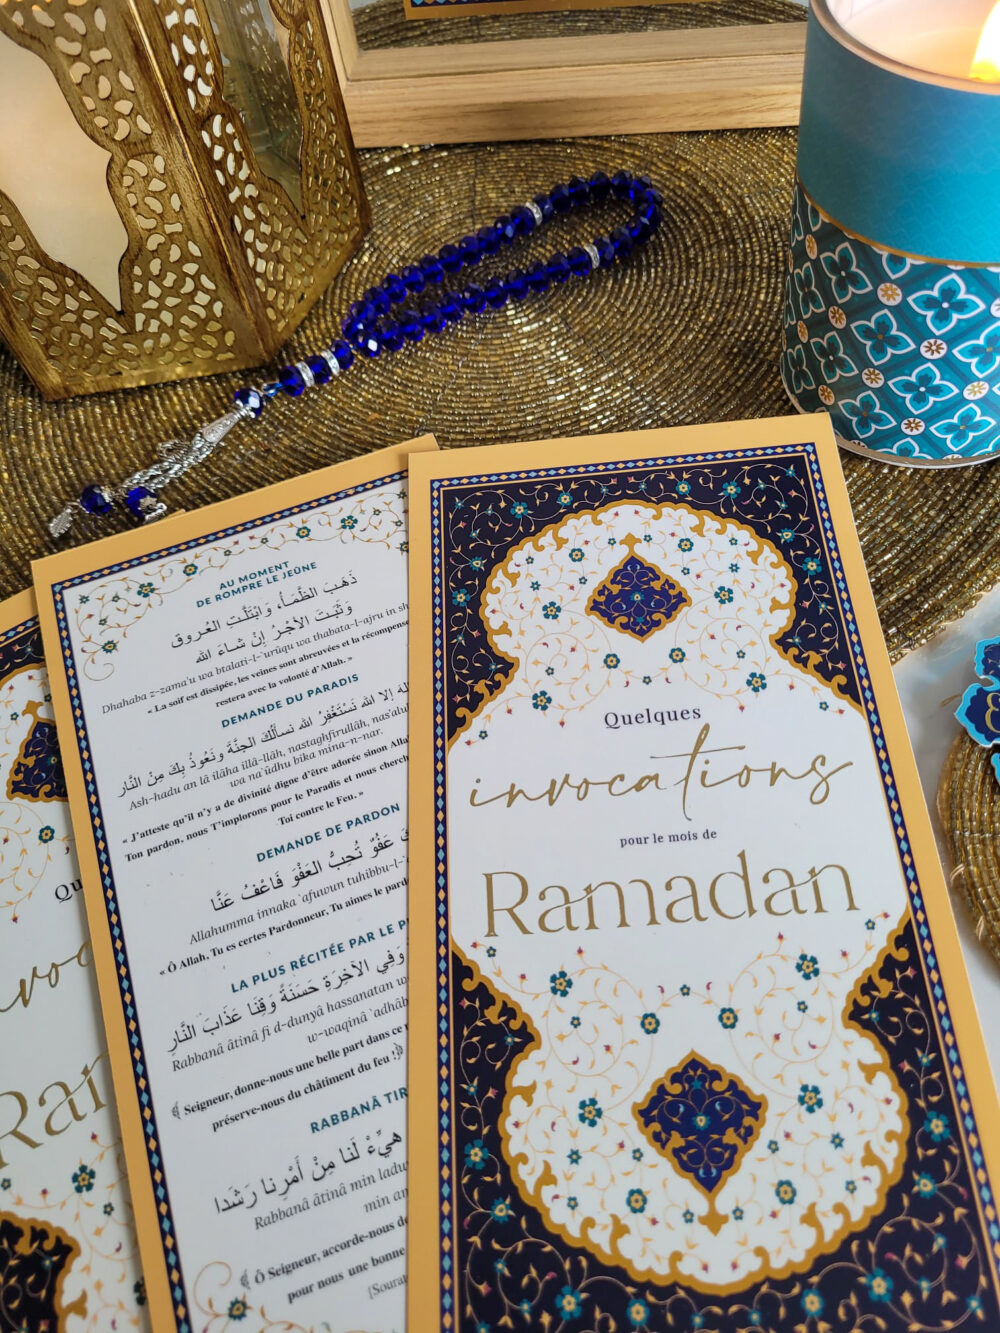 AU MOMENT
DE ROMPRE LE JEÛNE
ذَهَبَ الظَّمَأُ وَابْتَلَّتِ العُروق
وَثَبَتَ الأجْرُ إنْ شَاءَ الله
Dhahaba z-zama'u wa btalati-l-'urûqu wa thabata-l-ajru in sh
« La soif est dissipée, les veines sont abreuvées et la récompense
restera avec la volonté d'Allah. »
DEMANDE DU PARADIS
إلا الله نَسْتَغْفِرُ الله نَسألُكَ الجنَّةَ وَنَعُوذُ بِكَ مِنْ النَّار
Ash-hadu an lâ ilâha illâ-llâh, nastaghfirullâh, nas'alu
wa na'ûdhu bika mina-n-nar.
« J'atteste qu'il n'y a de divinité digne d'être adorée sinon Alla
Ton pardon, nous T'implorons pour le Paradis et nous cherch
Toi contre le Feu. »
DEMANDE DE PARDON
عَفُوٌّ تُحِبُّ العَفْوَ فَاعْفُ عَنَّا
Allahumma innaka 'afuwun tuhibbu-l-
« Ô Allah, Tu es certes Pardonneur, Tu aimes le pard
LA PLUS RÉCITÉE PAR LE P
وَفِي الآخِرَةِ حَسَنَةً وَقِنَا عَذَابَ النَّارِ
Rabbanâ âtinâ fi d-dunyâ hassanatan w
w-waqinâ 'adhâb
Seigneur, donne-nous une belle part dans ce
préserve-nous du châtiment du feu !
RABBANÂ TIR
هيِّءْ لَنا مِنْ أَمْرِنا رَشَدا
Rabbanâ âtinâ min ladu
min am
Ô Seigneur, accorde-nous de
pour nous une bonne
[Sourat
Quelques
invocations
pour le mois de
Ramadan
Qu
voc
Ra